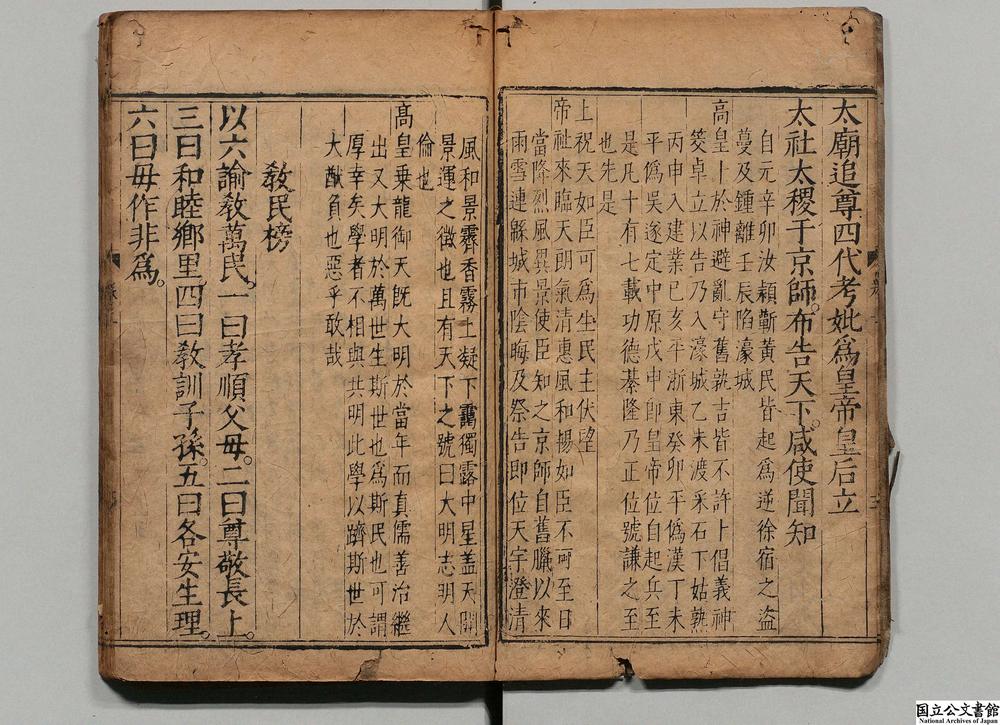 太廟追尊四代考妣爲皇帝皇后立
太社太稷于京師。布告天下。咸使聞知
自元辛卯汝穎蘄黃民皆起爲逆徐宿之盜
蔓及鍾離壬辰陷濠城
高皇卜於神避亂守舊孰吉皆不許卜倡義神
筊卓立以告乃入濠城乙未渡采石下姑熟
丙申入建業已亥平浙東癸卯平僞漢丁未
平僞吳遂定中原戊申卽皇帝位自起兵至
是凡十有七載功德綦隆乃正位號謙之至
也先是
上祝天如臣可爲生民主伏望
帝祉來臨天朗氣清惠風和暢如臣不可至日
當降烈風異景使臣知之京師自舊臘以來
雨雪連緜城市陰晦及祭告即位天宇澄清
風和景霽香霧上凝下靄獨露中星盖天開
景運之徵也且有天下之號曰大明志明人
倫也
高皇乗龍御天旣大明於當年而真儒善治繼
出又大明於萬世生斯世也爲斯民也可謂
厚幸矣學者不相與共明此學以躋斯世於
大猷負也惡乎敢哉
敎民榜
以六諭敎萬民。一曰孝順父母。二曰尊敬長上。
三曰和睦鄉里。四曰敎訓子孫。五曰各安生理。
六曰毋作非爲。
国立公文書館
National Archives of Japan